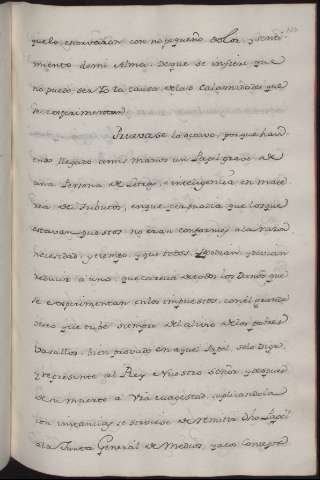 que lo estorvaran con no pequeño dolor, y senti-
miento de mi Alma. De que se infiere que
no puedo ser Yo la causa de las calamidades que
se experimentan.
Pruevase lo octavo, porque havi-
endo llegado a mis manos un Papel grave de
una Persona de Letras, e inteligencia en mate-
ria de tributos, en que persuadia que los que
estavan puestos no eran conformes a la razon
necesidad, y tiempo, y que todos se podian, y devian
reducir a uno, que carecia de todos los Daños que
se experimentan en los impuestos, con el grande
deseo que tube siempre del alivio de los pobres
Vasallos, bien provado en aquel Papel, se lo Di, ge
y represente al Rey Nuestro Señor, y despues
de su muerte a Vra Magestad, suplicandola
con instancias se sirviese de remitir dho Papel
a la Junta General de Medios, y a los Consejos